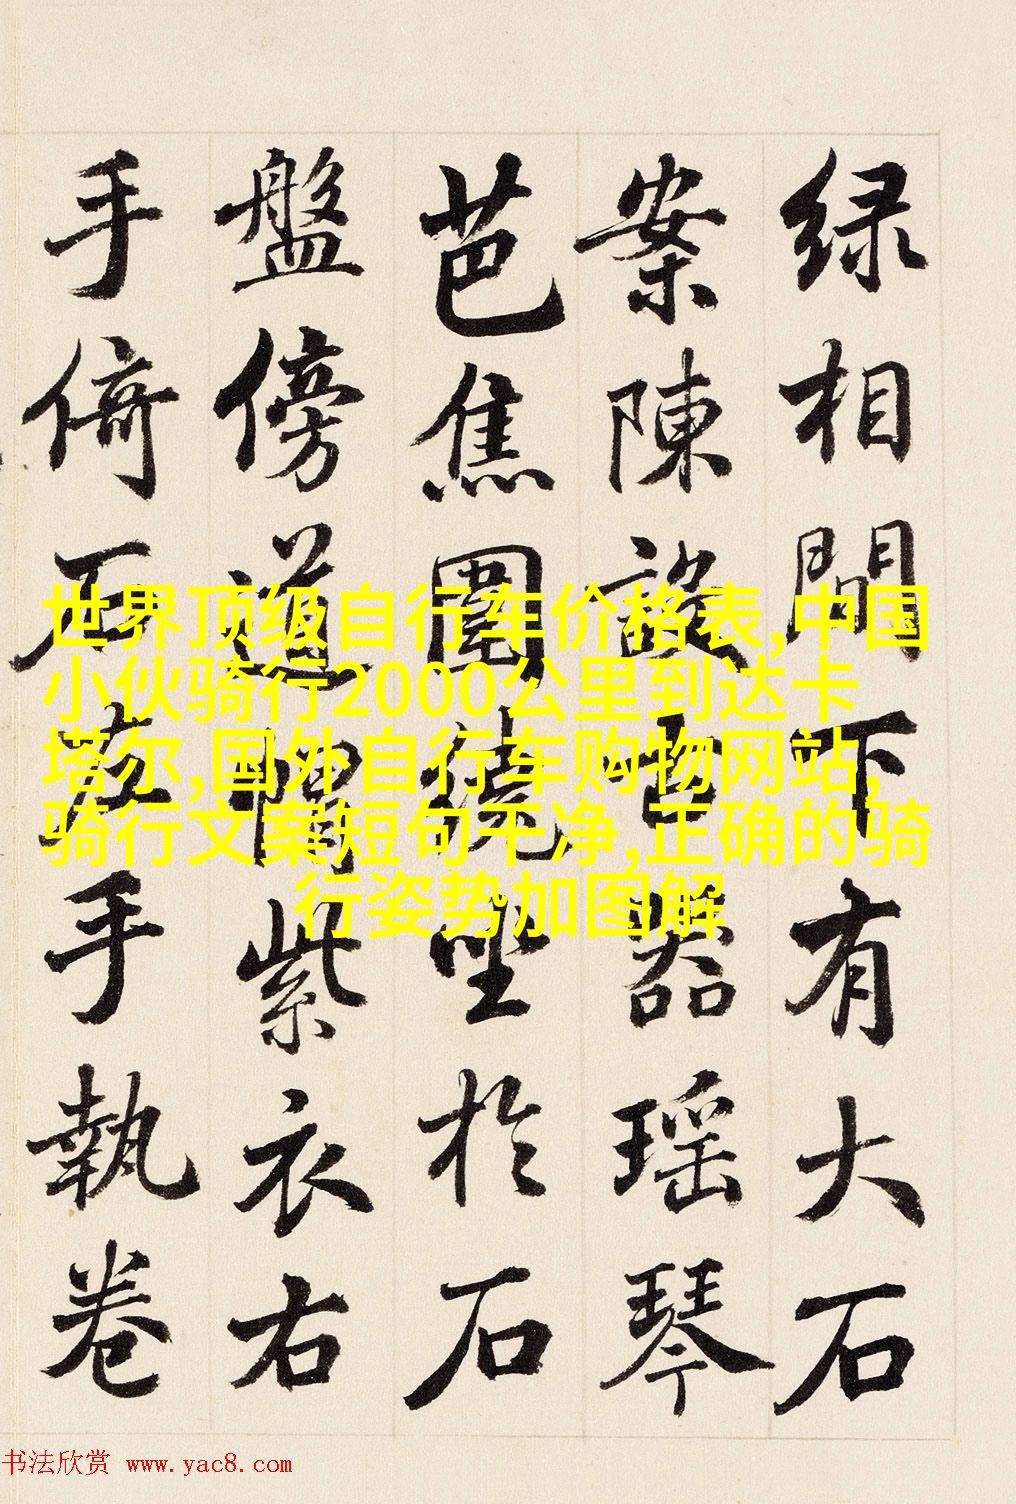 绿相間下有大石
案陳設古器瑶琴
芭焦圍繞坐於石
盤傍道帽紫衣右
手倚石左手執卷
世界顶级自行车价格表,中国
小伙骑行2000公里到达卡
塔尔,国外自行车购物网站,
骑行文案短句干净,正确的骑
行姿势加图解
书法欣赏 www.yac8.com